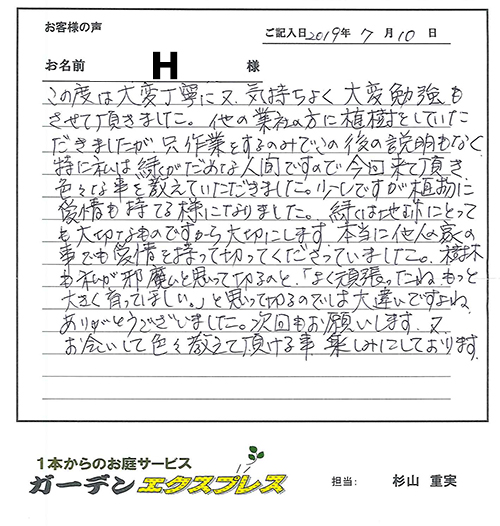 お客様の声
ご記入日 2019年 7月 10日
お名前 H 様
この度は大変丁寧に又、気持ちよく大変勉強も
させて頂きました。他の業社の方に植樹をしていた
だきましたが只作業をするのみでその後の説明もなく
特に私は緑がだめな人間ですので今回来て頂き
色々な事を教えていただきました。少しですが植物に
愛情も持てる様になりました。緑は地球にとって
も大切なものですから大切にします。本当に他人の家の
事でも愛情を持って切ってくださっていました。樹木
も私が邪魔と思って切るのと、「よく頑張ったね。もっと
大きく育ってほしい。」と思って切るのでは大違いですよね
ありがとうございました。次回もお願いします。又、
お会いして色々教えて頂ける事 楽しみにしております。
1本からのお庭サービス
ガーデンエクスプレス
担当: 杉山 重実